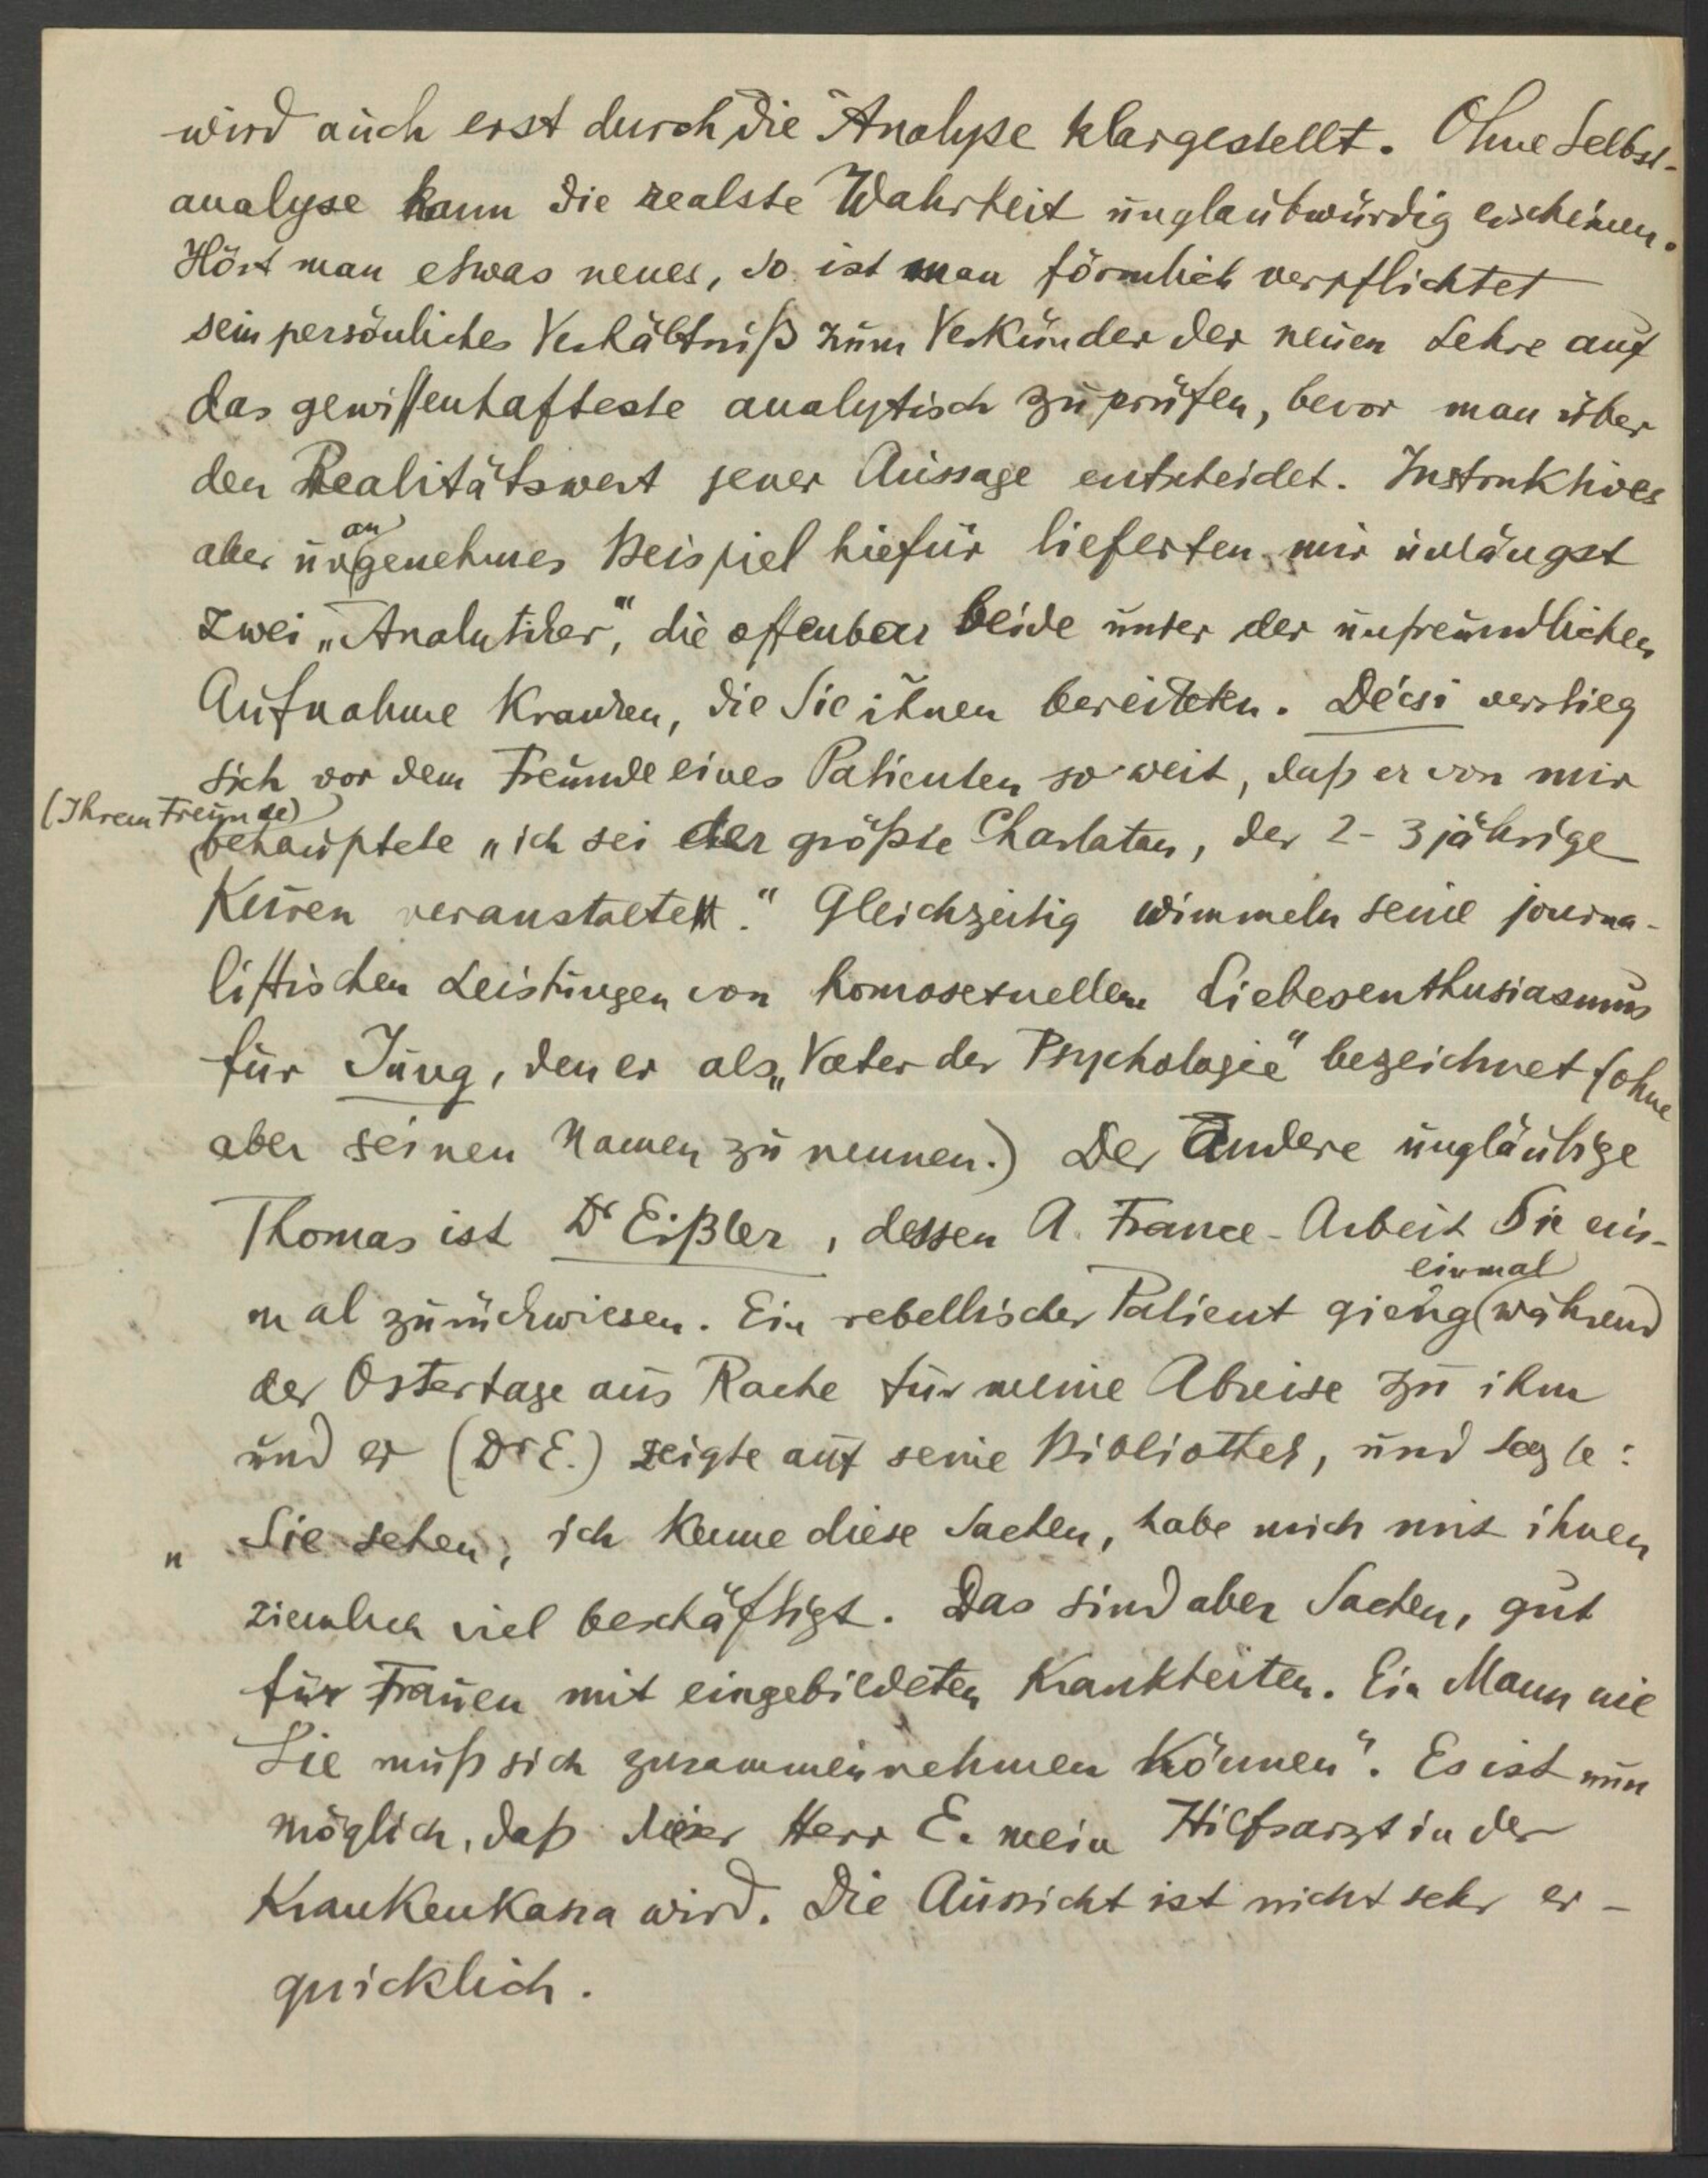 wird auch erst durch die Analyse klargestellt. Ohne Selbst-
analyse kann die realste Wahrheit unglaubwürdig erscheinen.
Hört man etwas neues, so ist man förmlich verpflichtet
sein persönliches Verhältniß zum Verkünder der neuen Lehre auf
das gewissenhafteste analytisch zu prüfen, bevor man über
den Realitätswert jener Aussage entscheidet. Instruktives
aber unangenehmes Beispiel hiefür lieferten mir unlängst
zwei „Analytiker“, die offenbar beide unter der unfreundlichen
Aufnahme kranken, die Sie ihnen bereiteten. Décsi verstieg
sich vor dem Freunde eines Patienten so weit, daß er von mir
(Ihrem Freunde)
behauptete „ich sei der größte Charlatan, der 2-3 jährige
Kuren veranstaltet.“ Gleichzeitig wimmeln seine journa-
listischen Leistungen von homosexuellem Liebesenthusiasmus
für Jung, den er als „Vater der Psychologie“ bezeichnet (ohne
aber seinen Namen zu nennen.) Der Andere ungläubige
Thomas ist Dr Eißler, dessen A. France-Arbeit Sie ein-
mal zurückwiesen. Ein rebellischer Patient gieng einmal während
der Ostertage aus Rache für meine Abreise zu ihm
und er (Dr E.) zeigte auf seine Bibliothek, und sagte:
„Sie sehen, ich kenne diese Sachen, habe mich mit ihnen
ziemlich viel beschäftigt. Das sind aber Sachen, gut
für Frauen mit eingebildeten Krankheiten. Ein Mann wie
Sie muß sich zusammennehmen können“. Es ist nun
möglich, daß dieser Herr E. mein Hilfsarzt in der
Krankenkassa wird. Die Aussicht ist nicht sehr er-
quicklich.